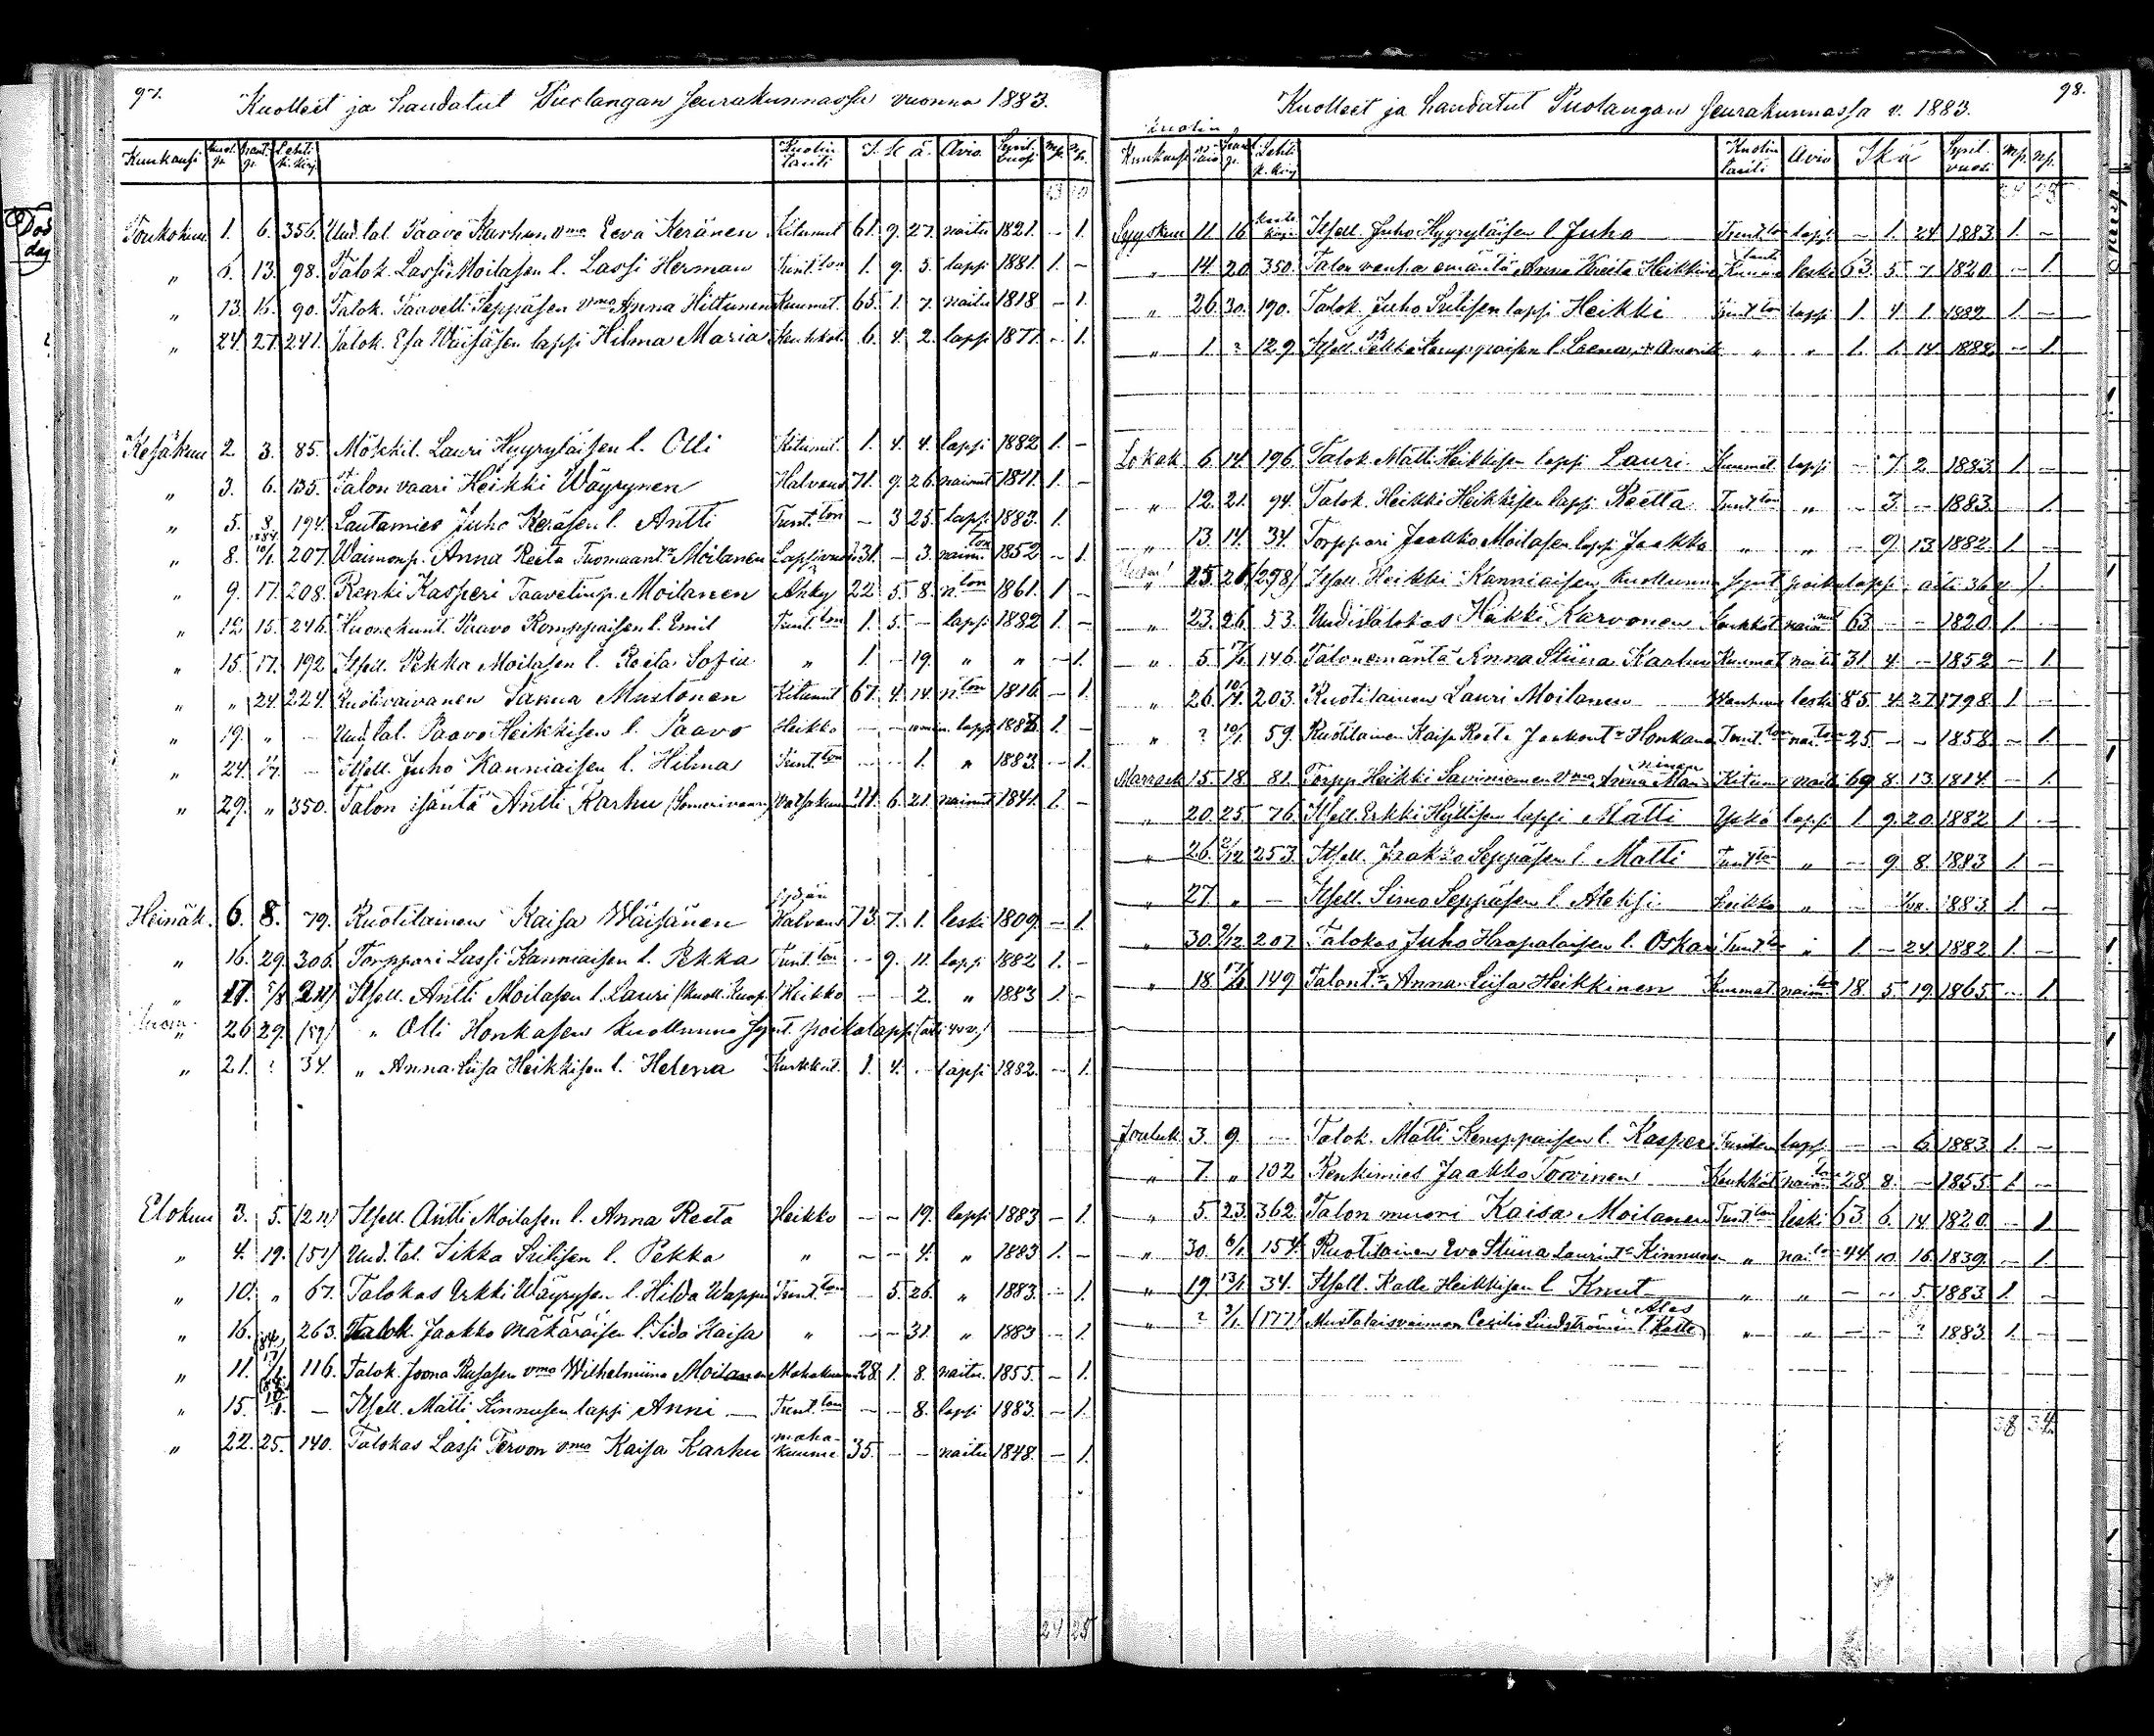 97.
Kuolleet ja haudatut Puolangan seurakunnassa vuonna 1883.
Kuukausi Lehti k. kirj. Kuolin tauti I. K. ä. Avio Synt. vuosi mp. np.
Toukokuu 1. 6. 356. Uud. tal. Paavo Karhun vmo Eeva Keränen Kitumat 61. 9. 27. naitu 1821. - 1.
" 13. 98. Talok. Lassi Moilasen l. Lassi Herman Tunt.ton 1. 9. 3. lapsi 1881. 1. -
" 13. 90. Talok. Taavetti Seppäsen vmo Anna Hiltunen Kuumat. 65. 1. 7. naitu 1818 - 1.
" 24. 27. 241. Talok. Esa Wäisäsen lapsi Hilma Maria Keuhkot. 6. 4. 2. lapsi 1877. - 1.
Kesäkuu 2. 3. 85. Mökkil. Lauri Hyyryläisen l. Olli Kitumat. 1. 4. 4. lapsi 1882 1. -
" 3. 6. 135. Talon vaari Heikki Wäyrynen Halvaus 71. 9. 26. nainut 1811. 1. -
" 5. 8. 194. Lautamies Juho Keräsen l. Antti Tunt.ton - 3 25. lapsi 1883. 1.
" 8. 10/1 1884 207. Waimonp. Anna Reeta Tuomaantr Moilanen 31. - 3. naim.ton 1852 - 1.
" 9. 17. 208. Renki Kasperi Taavetinp. Moilanen Ähky 22 5. 8. n.ton 1861. 1 -
" 12. 15. 246. Huonekunt. Paavo Komppaisen l. Emil Tunt.ton 1. 5. - lapsi 1882 1. -
" 15. 17. 192 Itsell. Pekka Moilasen l. Reeta Sofia " 1. - 19. " " - 1.
" " 24. 224. Ruotivaivanen Sanna Mustonen Kitumat 67. 4. 14. n.ton 1816 - 1.
" 19. " - Uud. tal. Paavo Heikkisen l. Paavo Heikko - - lapsi 1883. 1. -
" 24. - Itsell. Juho Kanniaisen l. Hilma Tunt.ton - - 1. " 1883. - 1.
" 29. " 350. Talon isäntä Antti Karhu 41. 6. 21. nainut 1841. 1. -
Heinäk. 6. 8. 79. Ruotilainen Kaisa Wäisänen Sydän Halvaus 73. 7. 1. leski 1809. - 1.
" 16. 29. 306. Torppari Lassi Kanniaisen l. Pekka Tunt.ton - 9. 11. lapsi 1882 1. -
" 17. 5/8 211) Itsell. Antti Moilasen l. Lauri Heikko - - 2. " 1883 1. -
" 26 29. (59) " Olli Honkasen kuolluuna synt. poikalapsi
" 21. ? 34. " Anna Liisa Heikkisen l. Helena Kurkkut. 1. 4. - lapsi 1882. - 1.
Elokuu 3. 5. (211) Itsell. Antti Moilasen l. Anna Reeta Heikko - - 19. lapsi 1883 - 1.
" 4. 19. (51) Uud. tal. Sikka l. Pekka " - - 4. " 1883 1. -
" 10. " 67. Talokas Erkki Wäyrysen l. Hilda Wappu Tunt.ton - 5. 26. " 1883. - 1.
" 16. 263. Talok. Jaakko Mäkäräisen l. Iida Kaisa " - - 31. " 1883 - 1.
" 11. 116. Talok. Joona vmo Wilhelmiina Moilanen 28. 1. 8. naitu. 1855. - 1.
" 15. - Itsell. Matti Kinnusen lapsi Anni Tunt.ton - - 8. lapsi 1883. - 1.
" 22. 25. 140. Talokas Lassi Tervon vmo Kaisa Karhu maha-kuume 35. - - naitu 1848. - 1.
24 25
98.
Kuolleet ja haudatut Puolangan seurakunnassa v. 1883.
Kuukausi Kuolin päivä Lehti k. kirj. Kuolin tauti Avio Ikä Synt. vuosi mp. np.
Syyskuu 11 16 Itsell. Juho Hyyryläisen l. Juho Tunt.ton lapsi - 1. 24 1883. 1. -
" 14. 20 350. Talon vanha emäntä Anna Kreeta Heikkinen leski 63. 5. 7. 1820. - 1.
" 26 30. 190. Talok. Juho lapsi Heikki Tunt.ton lapsi 1. 4 1. 1882 1. -
" 1. ? 129 Itsell. Pekka Kemppaisen l. Leena " " 1. 1. 14 1882. - 1.
Lokak. 6 14. 196. Talok. Matti Heikkisen lapsi Lauri. Kuumat lapsi - 7 2 1883. 1. -
" 12. 21. 94. Talok. Heikki Heikkisen lapsi Reetta Tunt.ton " - 3. - 1883. - 1.
" 13. 14. 34. Torppari Jaakko Moilasen lapsi Jaakko " " - 9. 13. 1882. 1 -
25. 26 (298) Itsell. Heikki Kanniaisen kuolluuna synt poikalapsi äiti 36 v.
" 23. 26. 53. Uudistalokas Heikki Karvonen Keuhkot nainut 63. - - 1820. 1. -
" 5. 146. Talon emäntä Anna Stiina Karhu Kuumat naitu 31. 4. - 1852 - 1.
" 26. 203. Ruotilainen Lauri Moilanen Wanhuus leski 85. 4. 27. 1798. 1 -
" ? 10/1 59. Ruotilainen Kaisa Reeta Jaakontr Honkanen Tunt.ton nai.ton 25 - - 1858 - 1.
Marrask. 15. 18. 81. Torpp. Heikki Saviniemen vmo Anna Kitum. naitu 69 8. 13. 1814. - 1.
" 20. 25 76. Itsell. Erkki Hyttisen lapsi Matti Yskä lapsi 1. 9. 20. 1882 1 -
" 26. 2/12 253. Itsell. Jaakko Seppäsen l. Matti Tunt.ton " - 9. 8. 1883 1. -
" 27. " - Itsell. Simo Seppäsen l. Aleksi Heikko " - 1883. 1. -
" 30. 9/12 207. Talokas Juho Haapalaisen l. Oskari Tunt.ton " 1. - 24 1882 1. -
" 18. 149 Talontr Anna Liisa Heikkinen Kuumat. naim.ton 18. 5. 19. 1865. - 1.
Jouluk. 3. 9. - Talok. Matti Kemppaisen l. Kasper lapsi - - 6. 1883. 1. -
" 7. " 102 Renkimies Jaakko Torvinen Keuhkot naim.ton 28 8. - 1855. 1. -
" 5. 23. 362. Talon muori Kaisa Moilanen Tunt.ton leski 63. 6. 14. 1820. - 1.
" 30. 6/1 154. Ruotilainen Eva Stiina Laurintr Kinnunen " nai.ton 44. 10. 16. 1839. - 1.
" 19. 13/1 34. Itsell. Kalle Heikkisen l. Knut " " - - 5. 1883. 1. -
" ? (177) Mustalaisvaimon Cecilia Lindströmin l. Kalle " " - - ? 1883. 1. -
38 34